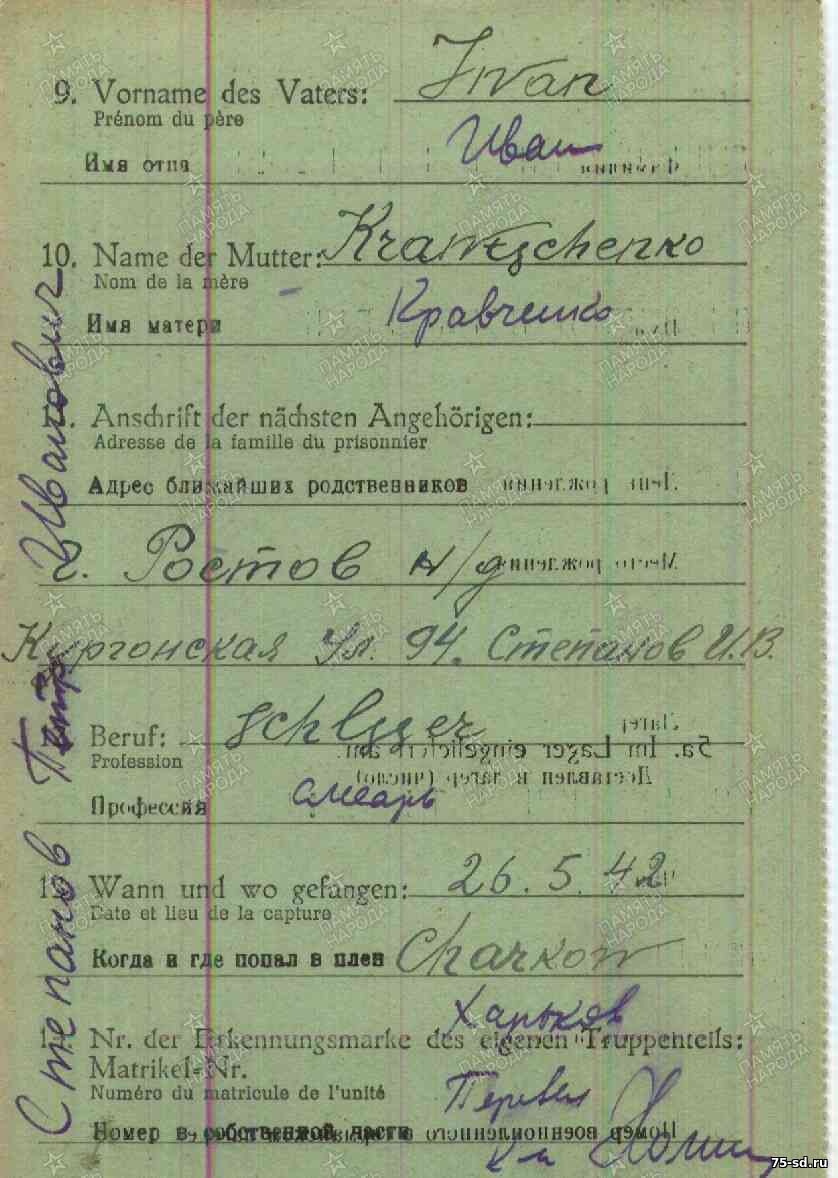 9. Vorname des Vaters: Iwan
Prénom du père
Имя отца Иван
10. Name der Mutter: Krawtschenko
Nom de la mère
Имя матери Кравченко
Anschrift der nächsten Angehörigen:
Adresse de la famille du prisonnier
Адрес ближайших родственников
г. Ростов н/д
Кургонская Ул. 94. Степанов И.В.
Beruf: Schlosser
Profession
5a. Im Lager eingeliefert am:
Доставлен в лагерь (число)
Профессия слесарь
Wann und wo gefangen: 26. 5. 42
Date et lieu de la capture
Когда и где попал в плен Charkow
Харьков
Nr. der Erkennungsmarke des eigenen Truppenteils:
Matrikel-Nr.
Numéro du matricule de l'unité
Перевел
Номер в собственной части
Степанов Петр Иванович
ПАМЯТЬ НАРОДА
75-sd.ru